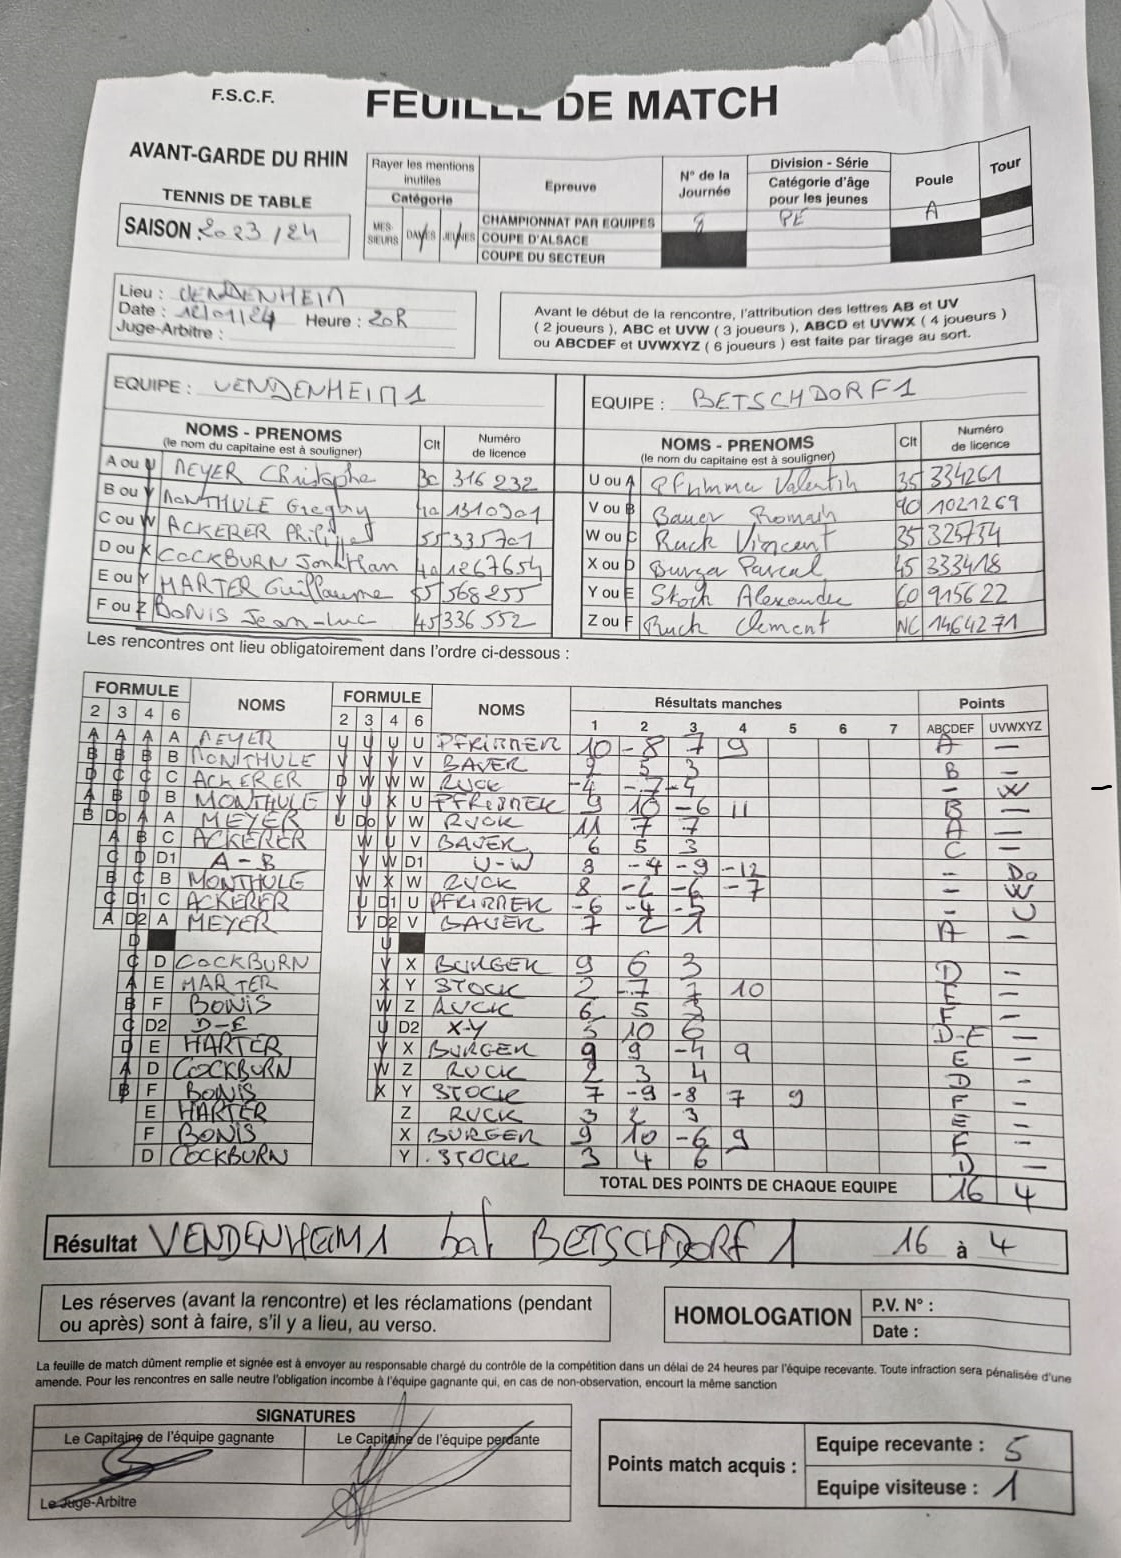 F.S.C.F.
FEUILLE DE MATCH
AVANT-GARDE DU RHIN
TENNIS DE TABLE
SAISON : 2023/24
Rayer les mentions inutiles
Catégorie
MES-SIEURS DAMES JEUNES
Epreuve
CHAMPIONNAT PAR EQUIPES
COUPE D'ALSACE
COUPE DU SECTEUR
N° de la Journée
8
Division - Série
Catégorie d'âge pour les jeunes
PE
Poule
A
Tour
Lieu : VENDENHEIM
Date : 12/01/24 Heure : 20h
Juge-Arbitre :
Avant le début de la rencontre, l'attribution des lettres AB et UV
( 2 joueurs ), ABC et UVW ( 3 joueurs ), ABCD et UVWX ( 4 joueurs )
ou ABCDEF et UVWXYZ ( 6 joueurs ) est faite par tirage au sort.
EQUIPE : VENDENHEIM 1
EQUIPE : BETSCHDORF 1
NOMS - PRENOMS
(le nom du capitaine est à souligner)
Clt
Numéro de licence
A ou U MEYER Christophe 30 316 232
B ou V MONTHULE Gregory 40 1310901
C ou W ACKERER 55 335701
D ou X COCKBURN Jonathan 40 1267654
E ou Y HARTER Guillaume 55 568255
F ou Z BONIS Jean-Luc 45 336 552
NOMS - PRENOMS
(le nom du capitaine est à souligner)
Clt
Numéro de licence
U ou A Pfrimmer Valentin 35 334261
V ou B Bauer Romain 90 1021269
W ou C Ruck Vincent 35 325734
X ou D Burger Pascal 45 333418
Y ou E Stock Alexandre 60 915622
Z ou F Ruck Clement NC 1464271
Les rencontres ont lieu obligatoirement dans l'ordre ci-dessous :
FORMULE NOMS FORMULE NOMS Résultats manches Points
2 3 4 6 2 3 4 6 1 2 3 4 5 6 7 ABCDEF UVWXYZ
A A A A MEYER U U U U PFRIMMER 10 -8 7 9 A -
B B B B MONTHULE V V V V BAUER 9 5 3 B -
D C C C ACKERER D W W W RUCK -4 -7 -4 - W
A B D B MONTHULE V U X U PFRIMMER 9 10 -6 11 B -
B Do A A MEYER U Do V W RUCK 11 7 7 A -
A B C ACKERER W U V BAUER 6 5 3 C -
C D D1 A-B V W D1 U-W 3 -4 -9 -12 - Do
B C B MONTHULE W X W RUCK 8 -2 -6 -7 - W
C D1 C ACKERER U D1 U PFRIMMER -6 -4 -5 - U
A D2 A MEYER V D2 V BAUER 7 2 1 A -
D U
C D COCKBURN V X BURGER 9 6 3 D -
A E HARTER X Y STOCK 2 -7 7 10 E -
B F BONIS W Z RUCK 6 5 3 F -
C D2 D-E U D2 X-Y 3 10 6 D-E -
D E HARTER V X BURGER 9 9 -4 9 E -
A D COCKBURN W Z RUCK 2 3 4 D -
B F BONIS X Y STOCK 7 -9 -8 7 9 F -
E HARTER Z RUCK 3 2 3 E -
F BONIS X BURGER 9 10 -6 9 F -
D COCKBURN Y STOCK 3 4 6 D -
TOTAL DES POINTS DE CHAQUE EQUIPE 16 4
Résultat VENDENHEIM 1 bat BETSCHDORF 1 16 à 4
Les réserves (avant la rencontre) et les réclamations (pendant
ou après) sont à faire, s'il y a lieu, au verso.
HOMOLOGATION
P.V. N° :
Date :
La feuille de match dûment remplie et signée est à envoyer au responsable chargé du contrôle de la compétition dans un délai de 24 heures par l'équipe recevante. Toute infraction sera pénalisée d'une
amende. Pour les rencontres en salle neutre l'obligation incombe à l'équipe gagnante qui, en cas de non-observation, encourt la même sanction
SIGNATURES
Le Capitaine de l'équipe gagnante
Le Capitaine de l'équipe perdante
Le Juge-Arbitre
Points match acquis :
Equipe recevante : 5
Equipe visiteuse : 1